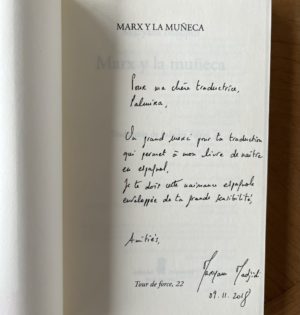 MARX Y LA MUÑECA
Marx y la muñeca
Pour ma chère traductrice,
Palmira,
Un grand merci pour ta traduction
qui permet à mon livre de naître
en espagnol,
Je te dois cette naissance espagnole
enveloppée de ta grande sensibilité,
Amitiés,
Maryam Madjidi
Tour de force, 22
09.11.2018